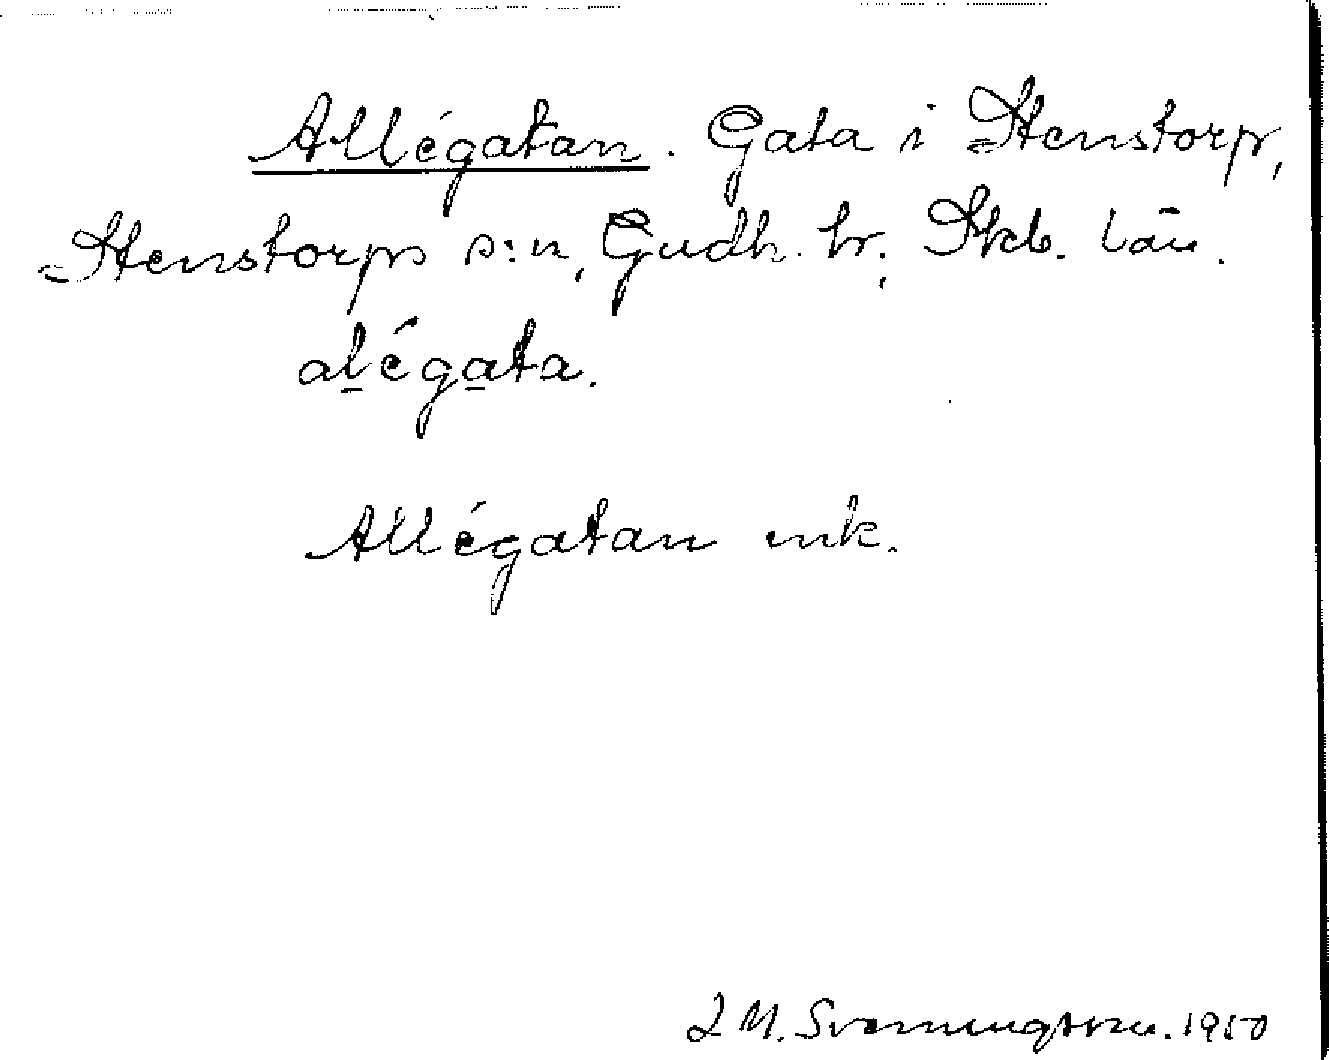 Allégatan. Gata i Stenstorp,
Stenstorps s:n, Gudh. hr., Skb. län.
alégata.
Allégatan mk.
J M. Svenningsson. 1950